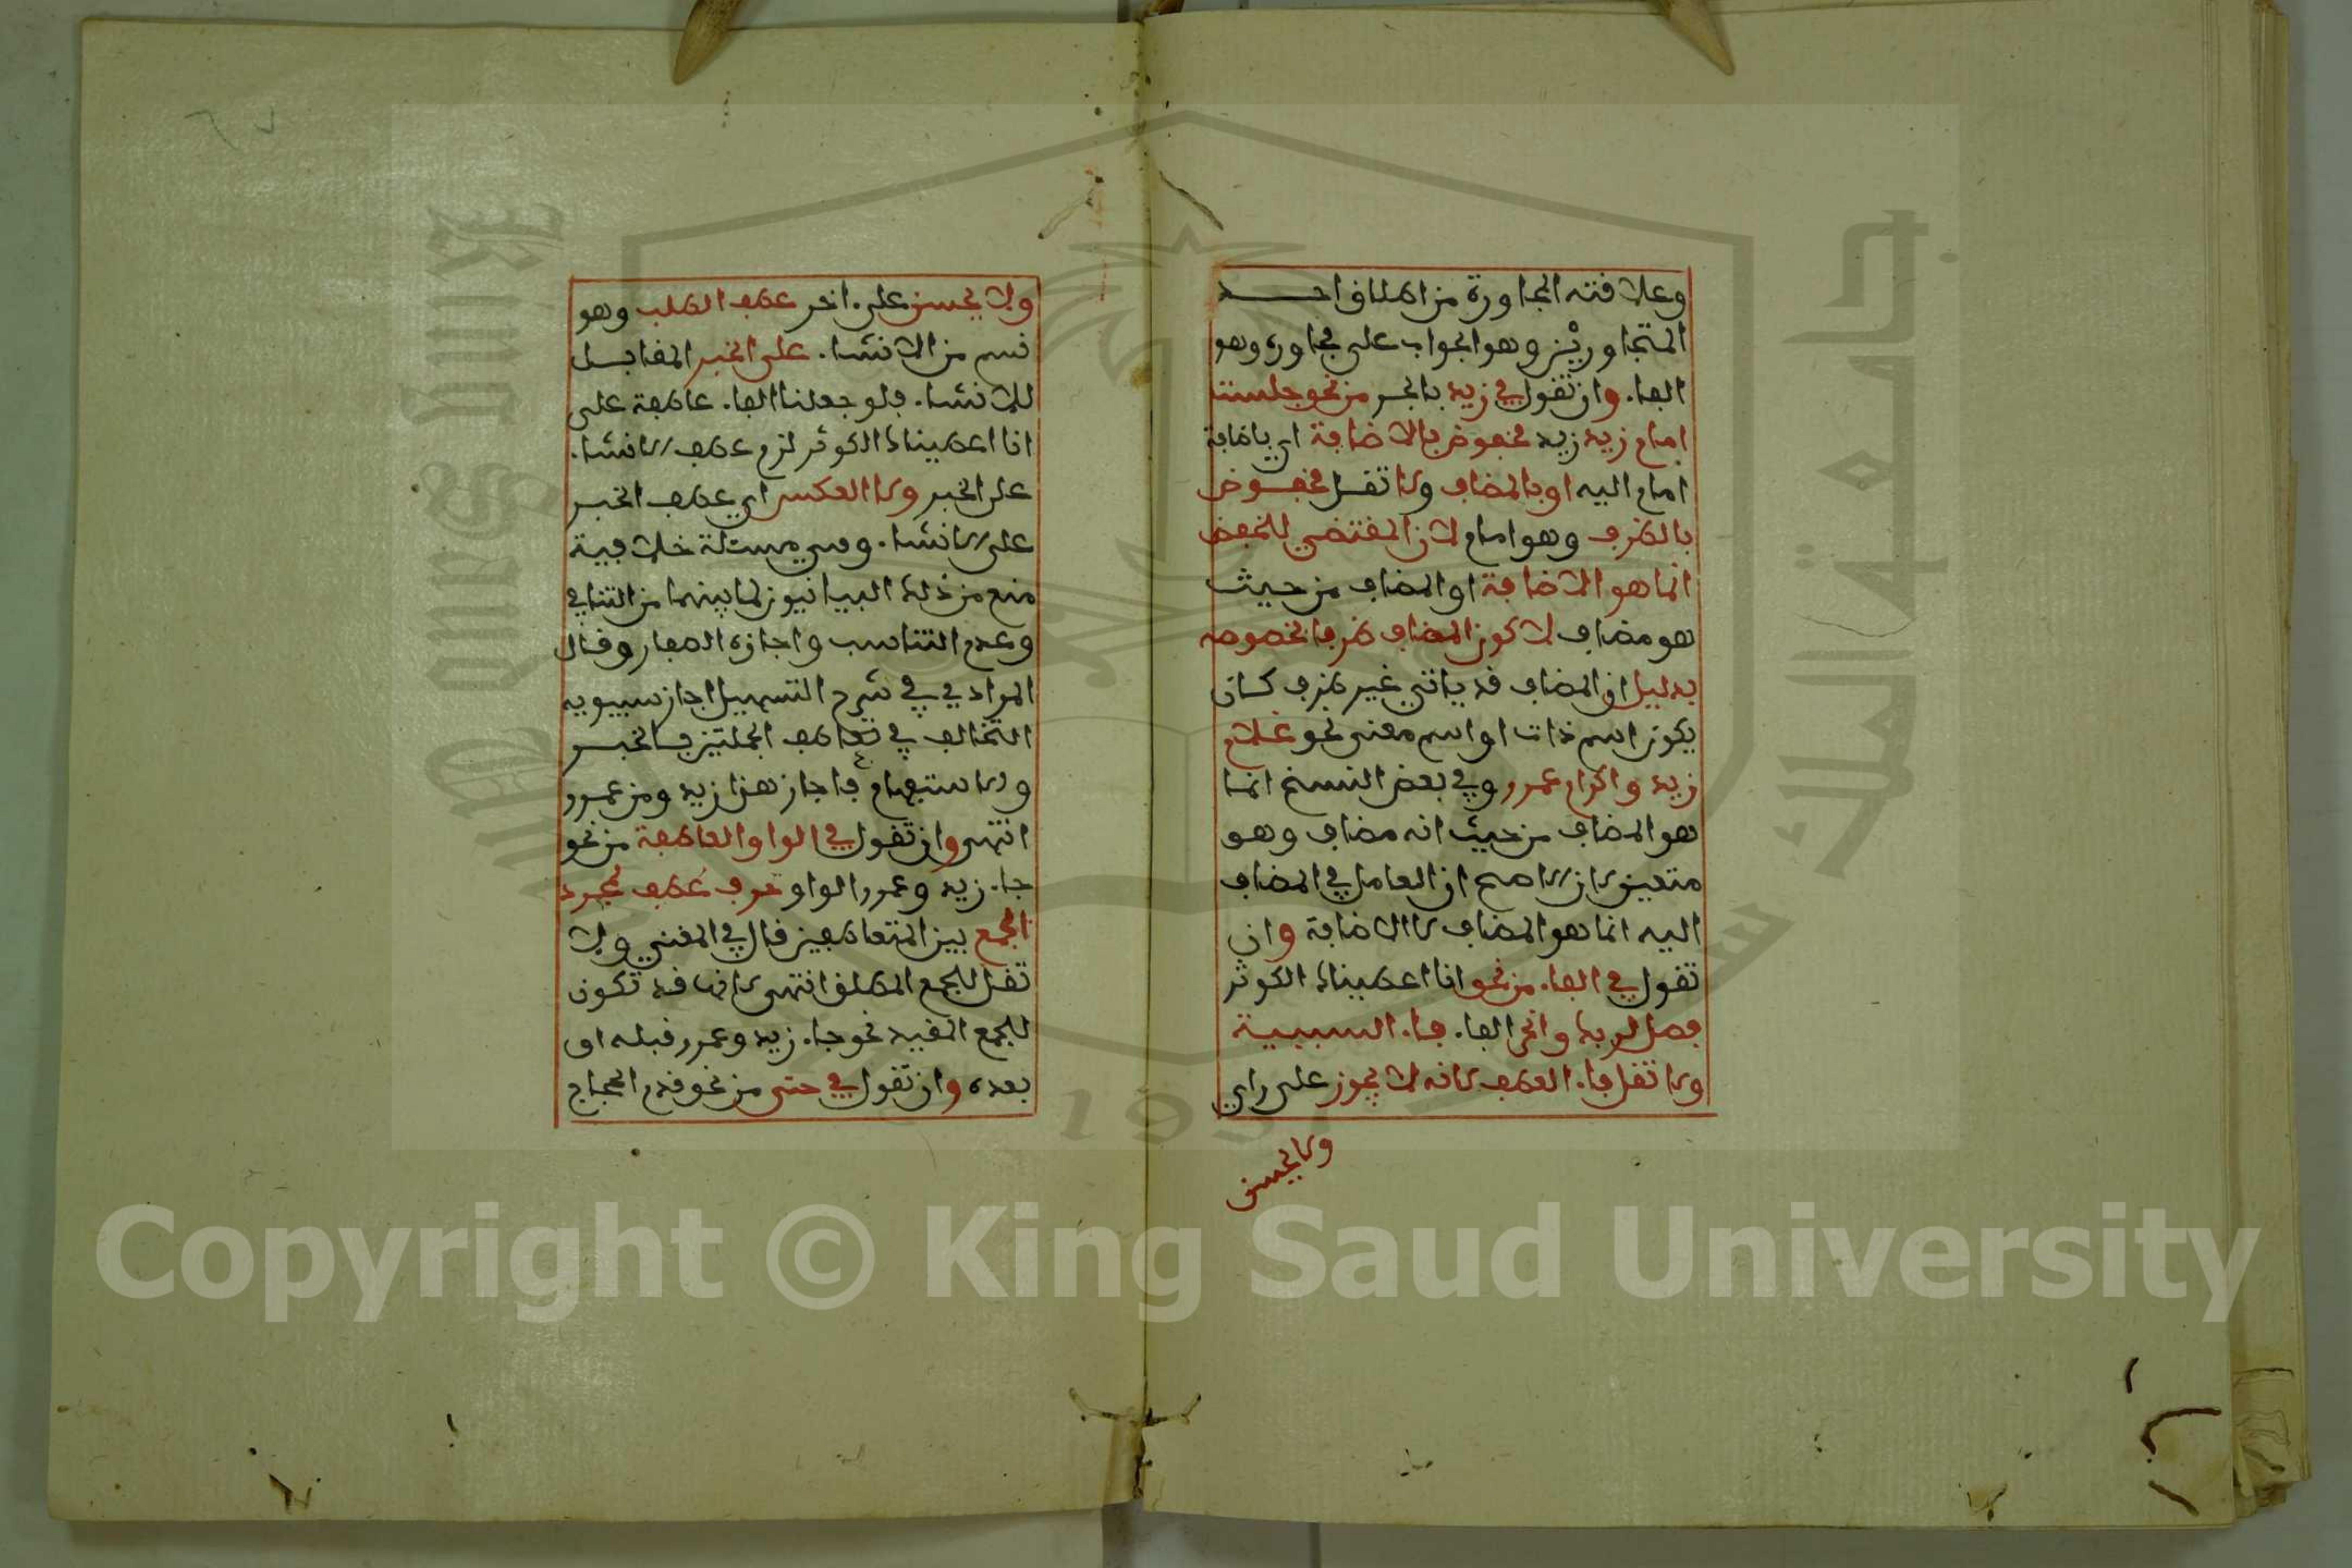 وعلاقته المجاورة من اطلاق احد
المتجاورين وهو الجواب على مجاوره وهو
الفاء وان تقول في زيد بالجر من نحو جلست
امام زيد زيد مخفوض بالاضافة اي باضافة
امام اليه او بالمضاف ولا تقل مخفوض
بالظرف وهو امام لان المقتضي للخفض
انما هو الاضافة او المضاف من حيث
هو مضاف لا كون المضاف ظرفا بخصوصه
بدليل ان المضاف قد ياتي غير ظرف كان
يكون اسم ذات او اسم معنى نحو غلام
زيد واكرام عمرو وفي بعض النسخ انما
هو المضاف من حيث انه مضاف وهو
متعين لان الاصح ان العامل في المضاف
اليه انما هو المضاف لا الاضافة وان
تقول في الفاء من نحو انا اعطيناك الكوثر
فصل لربك وانحر الفاء فاء السببية
ولا تقل فاء العطف لانه لا يجوز على راي
ولا يحسن
ولا يحسن على اخر عطف الطلب وهو
قسم من الانشاء على الخبر المقابل
للانشاء فلو جعلنا الفاء عاطفة على
انا اعطيناك الكوثر لزم عطف الانشاء
على الخبر ولا العكس اي عطف الخبر
على الانشاء وهي مسئلة خلافية
منع من ذلك البيانيون لما بينهما من التنافي
وعدم التناسب واجازه الصفار وقال
المرادي في شرح التسهيل اجاز سيبويه
التخالف في تعاطف الجملتين بالخبر
والاستفهام فاجاز هذا زيد ومن عمرو
انتهى وان تقول في الواو العاطفة من نحو
جاء زيد وعمرو الواو حرف عطف لمجرد
الجمع بين المتعاطفين قال في المغني ولا
تقل للجمع المطلق انتهى لانها قد تكون
للجمع المقيد نحو جاء زيد وعمرو قبله او
بعده وان تقول في حتى من نحو قدم الحجاج
Copyright © King Saud University